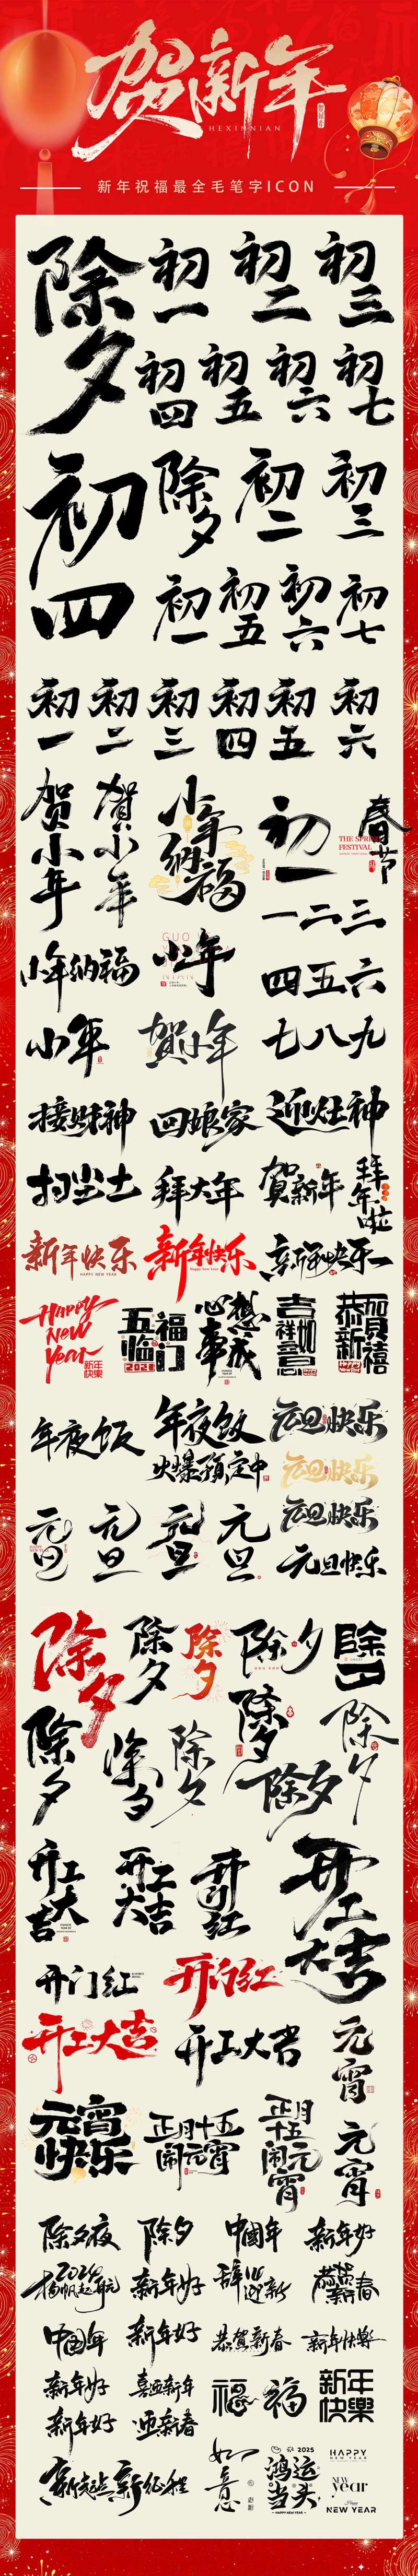 贺新年
HEXINNIAN
新年祝福最全毛笔字ICON
除夕
初一
初二
初三
初四
初五
初六
初七
初四
除夕
初二
初三
初一
初五
初六
初七
初一
初二
初三
初四
初五
初六
贺小年
賀小年
小年纳福
初一
THE SPRING
FESTIVAL
春节
一二三
小年纳福
GUO
NIAN
小年
四五六
小年
賀小年
七八九
接财神
回娘家
迎灶神
扫尘土
拜大年
贺新年
拜年啦
新年快乐
HAPPY NEW YEAR
新年快乐
Happy New Year
新年快乐
Happy
New
Year
新年
快樂
五福
临门
2021
心想
事成
吉祥如意
恭賀新禧
年夜饭
年夜饭
火爆预定中
元旦快乐
元旦快乐
元旦快乐
元旦快乐
元旦
元旦
元旦
元旦
除夕
除夕
除夕
除夕
除夕
除夕
除夕
除夕
除夕
除夕
除夕
开工大吉
开工大吉
开门红
开工大吉
开门红
开门红
开工大吉
开工大吉
元宵
元宵
快乐
正月十五
闹元宵
正月十五
闹元宵
元宵
除夕夜
除夕
中國年
新年好
2024
扬帆起航
新年好
辞旧迎新
恭贺新春
中國年
新年好
恭贺新春
新年快樂
新年好
喜迎新年
福
福
新年
快樂
新年好
迎新春
新起点 新征程
如意
2025
鸿运
当头
HAPPY NEW YEAR
HAPPY
NEW YEAR
NEW
year
Happy
NEW YEAR